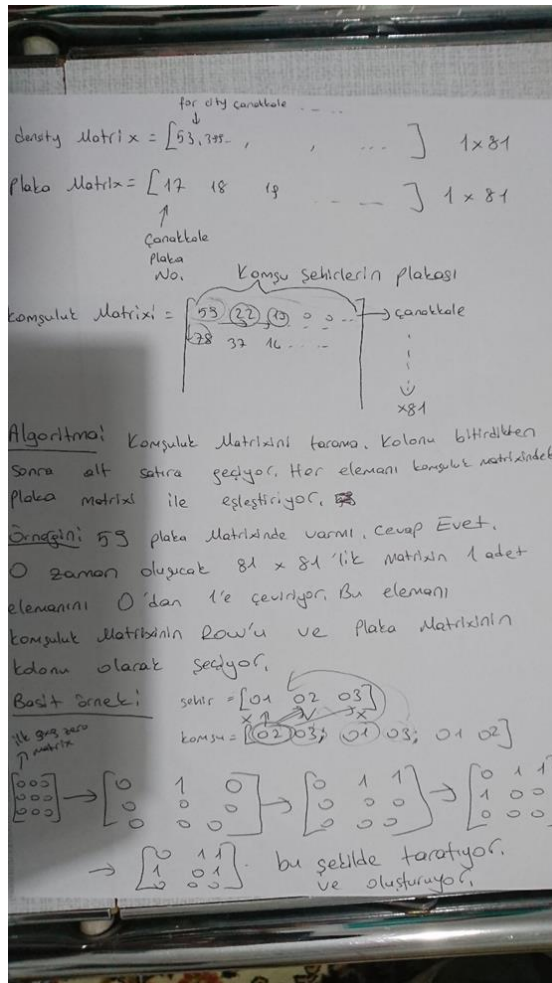 for city Çanakkale ... ..
density Matrix = [53,375.. , , ... ] 1x81
Plaka Matrix = [17 18 19 ... ..] 1x81
Çanakkale
Plaka
No.
Komşu Şehirlerin plakası
Komşuluk Matrixi = [59 22 10 0 0 .. → Çanakkale
78 37 16 ... ..
x81
Algoritma: Komşuluk Matrixini tarama. Kolonu bitirdikten
sonra alt satıra geçiyor. Her elemanı komşuluk matrixindek
Plaka matrixi ile eşleştiriyor.
Örneğin: 59 plaka Matrixinde varmı. Cevap Evet.
O zaman oluşucak 81 x 81'lik Matrixin 1 adet
elemanını 0'dan 1'e çeviriyor. Bu elemanı
Komşuluk Matrixinin Row'u ve Plaka Matrixinin
kolonu olarak seçiyor.
Basit örnek: şehir = [01 02 03]
x ✓ x
komşu = [02 03; 01 03; 01 02]
ilk zero
matrix
[000 000 000] → [0 1 0 0 0 0 0 0 0] → [0 1 1 0 0 0 0 0 0] → [0 1 1 1 0 0 0 0 0]
→ [0 1 1 1 0 1 0 0 0]. bu şekilde taratıyor.
ve oluşturuyor.